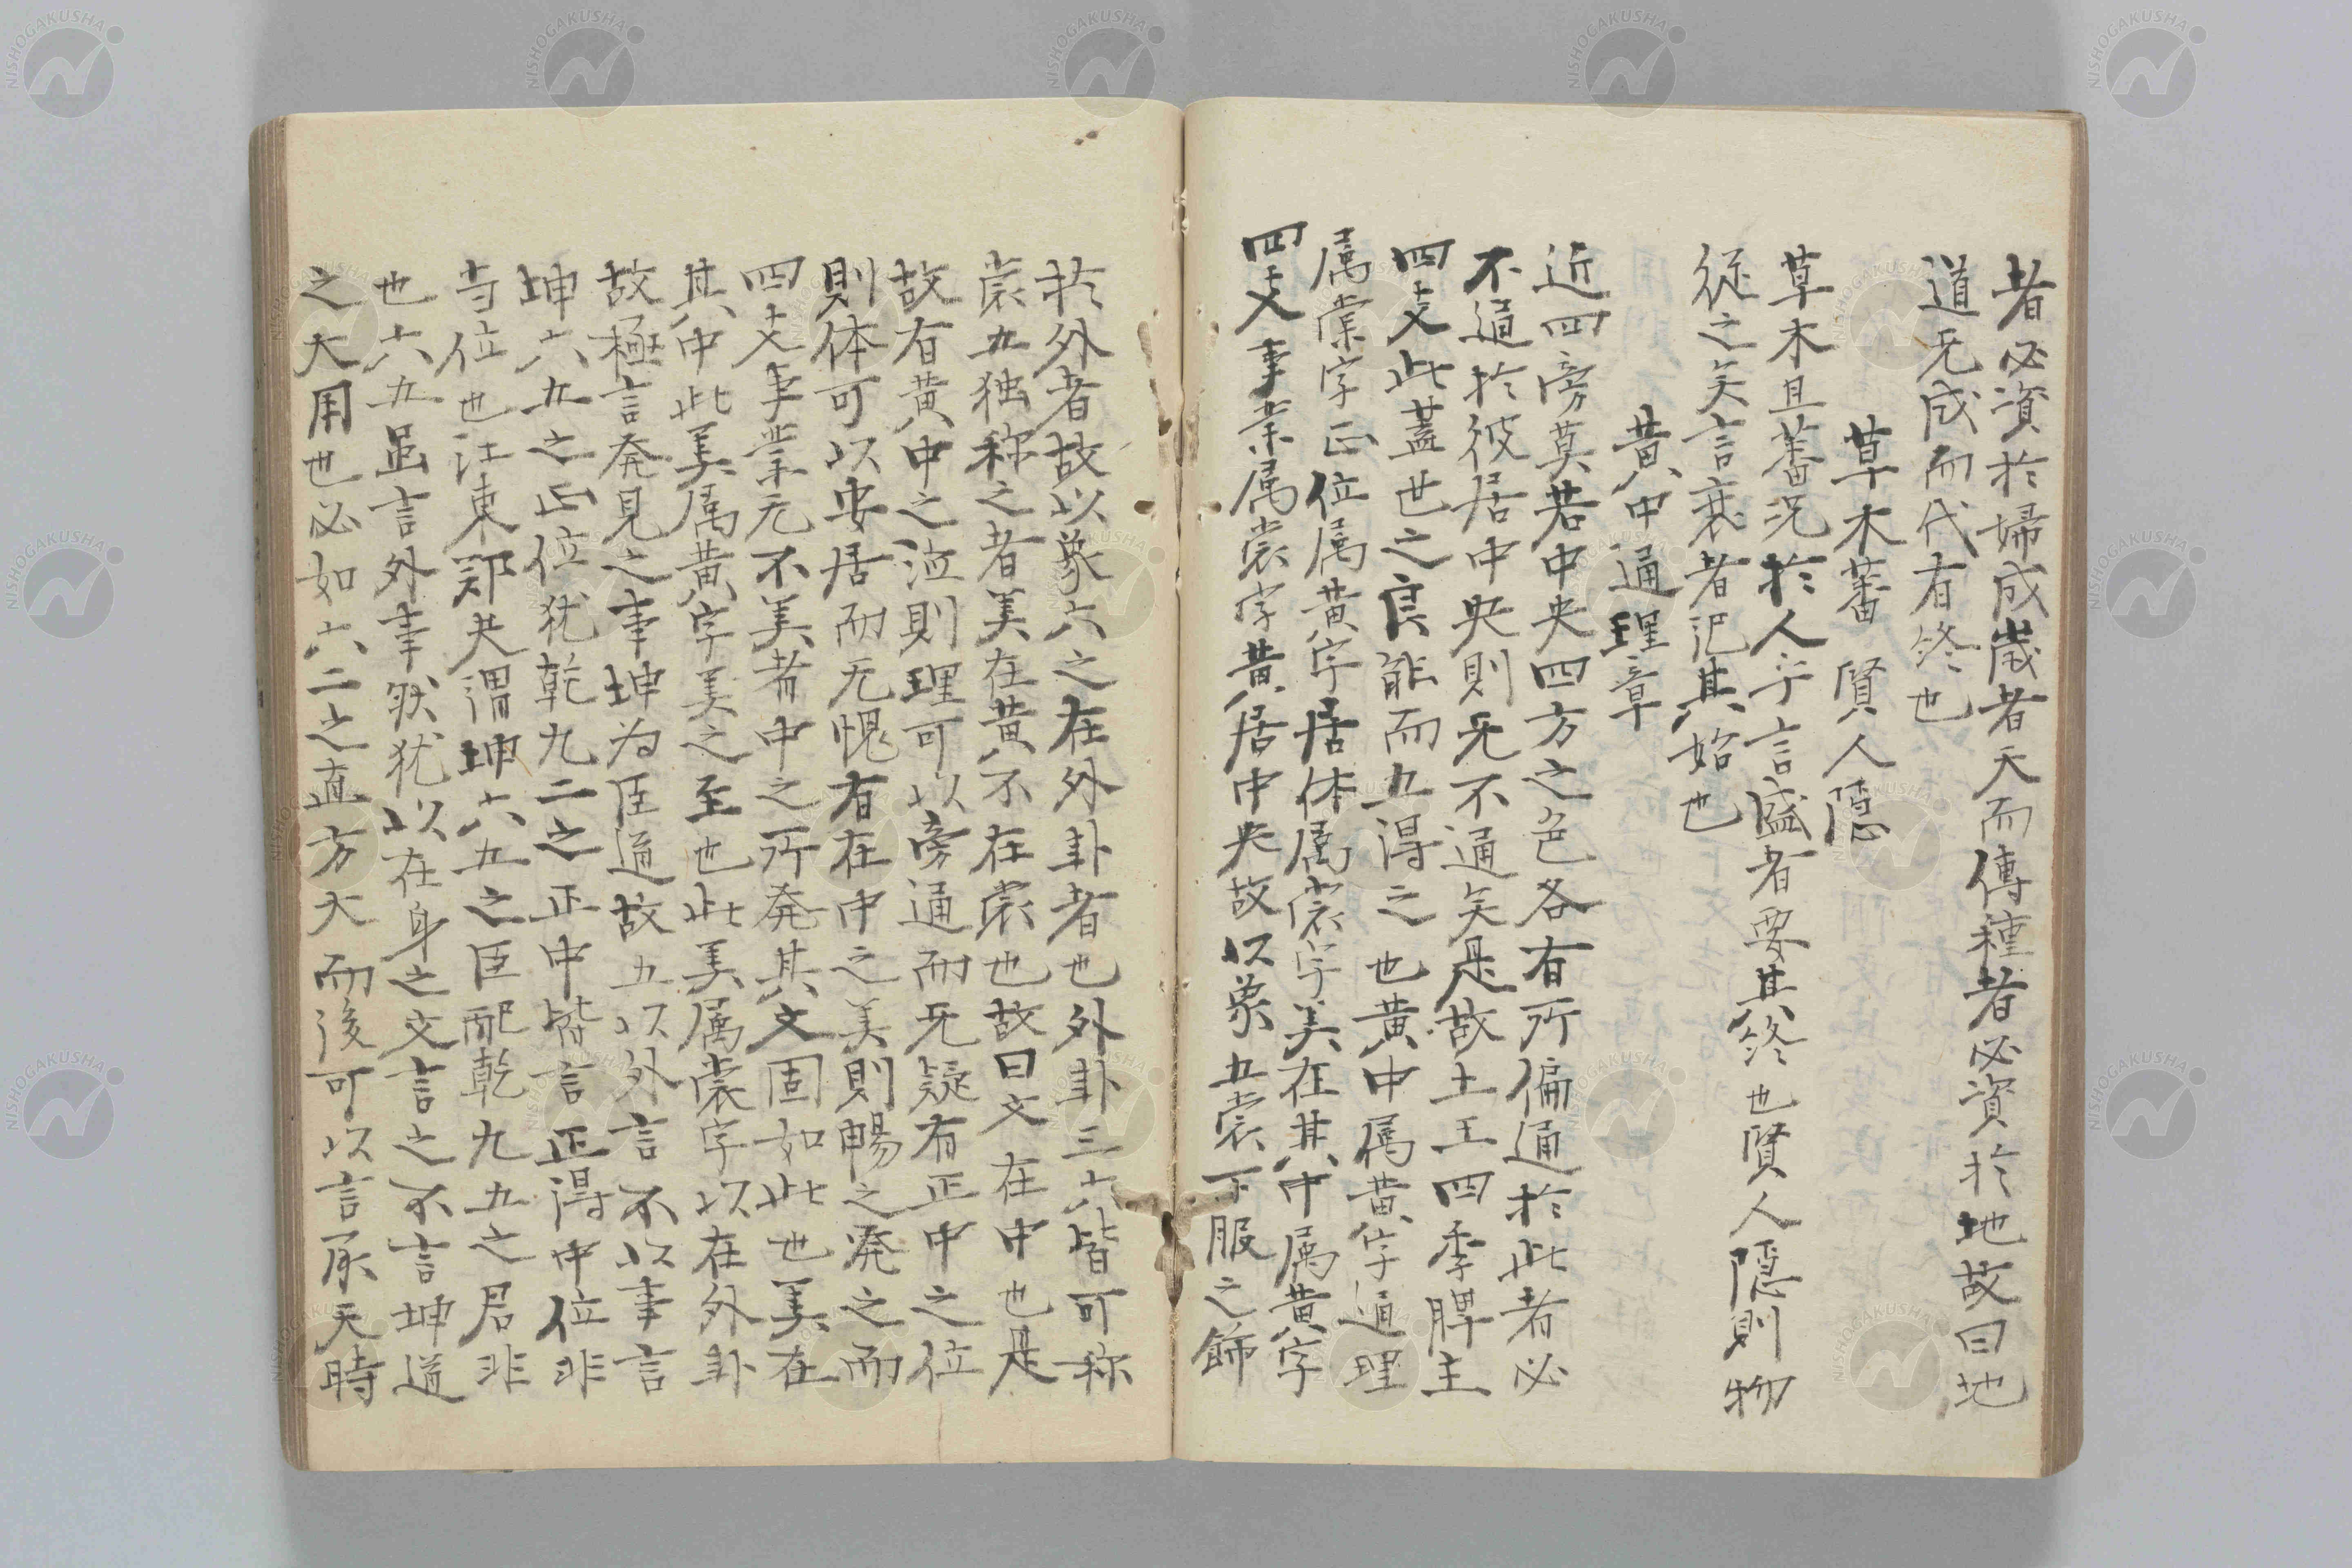 者必資於婦成歳者天而傳種者必資於地故曰地
道无成而代有終也
草木蕃 賢人隠
草木且蕃况於人乎言盛者要其終也賢人隠則物
従之矣言衰者汜其始也
黄中通理章
近四旁莫若中央四方之色各有所偏通於此者必
不通於彼居中央則无不通矣是故土王四季脾主
四支此蓋世之良能而五得之也黄中属黄字通理
属裳字正位属黄字居体属裳字美在其中属黄字
四支事業属裳字黄居中央故以象五裳下服之飾
於外者故以象六之在外卦者也外卦三六皆可称
裳五独称之者美在黄不在裳也故曰文在中也是
故有黄中之泣則理可以旁通而无疑有正中之位
則体可以安居而无愧有在中之美則暢之発之而
四支事業无不美者中之所発其文固如此也美在
其中此美属黄字美之至也此美属裳字以在外卦
故極言発見之事坤為臣道故五以外言不以事言
坤六五之正位犹乾九二之正中皆言正得中位非
寺位也江東鄭夬謂坤六五之臣配乾九五之君非
也六五虽言外事然犹以在身之文言之不言坤道
之大用也必如六二之直方大而後可以言承天時
NISHOGAKUSHA